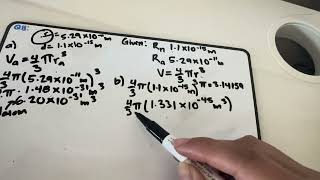 Q8:
r = 5.29×10⁻¹¹m
d = 1.1×10⁻¹⁵m
Given: Rn 1.1×10⁻¹⁵m
Ra 5.29×10⁻¹¹m
V = 4/3 πr³
a)
Va = 4/3 πra³
4/3 π(5.29×10⁻¹¹m)³
π · 1.48×10⁻³¹m³
6.20×10⁻³¹m³
b) 4/3 π(1.1×10⁻¹⁵m)³ π = 3.14159
4/3 π(1.331×10⁻⁴⁵m³)